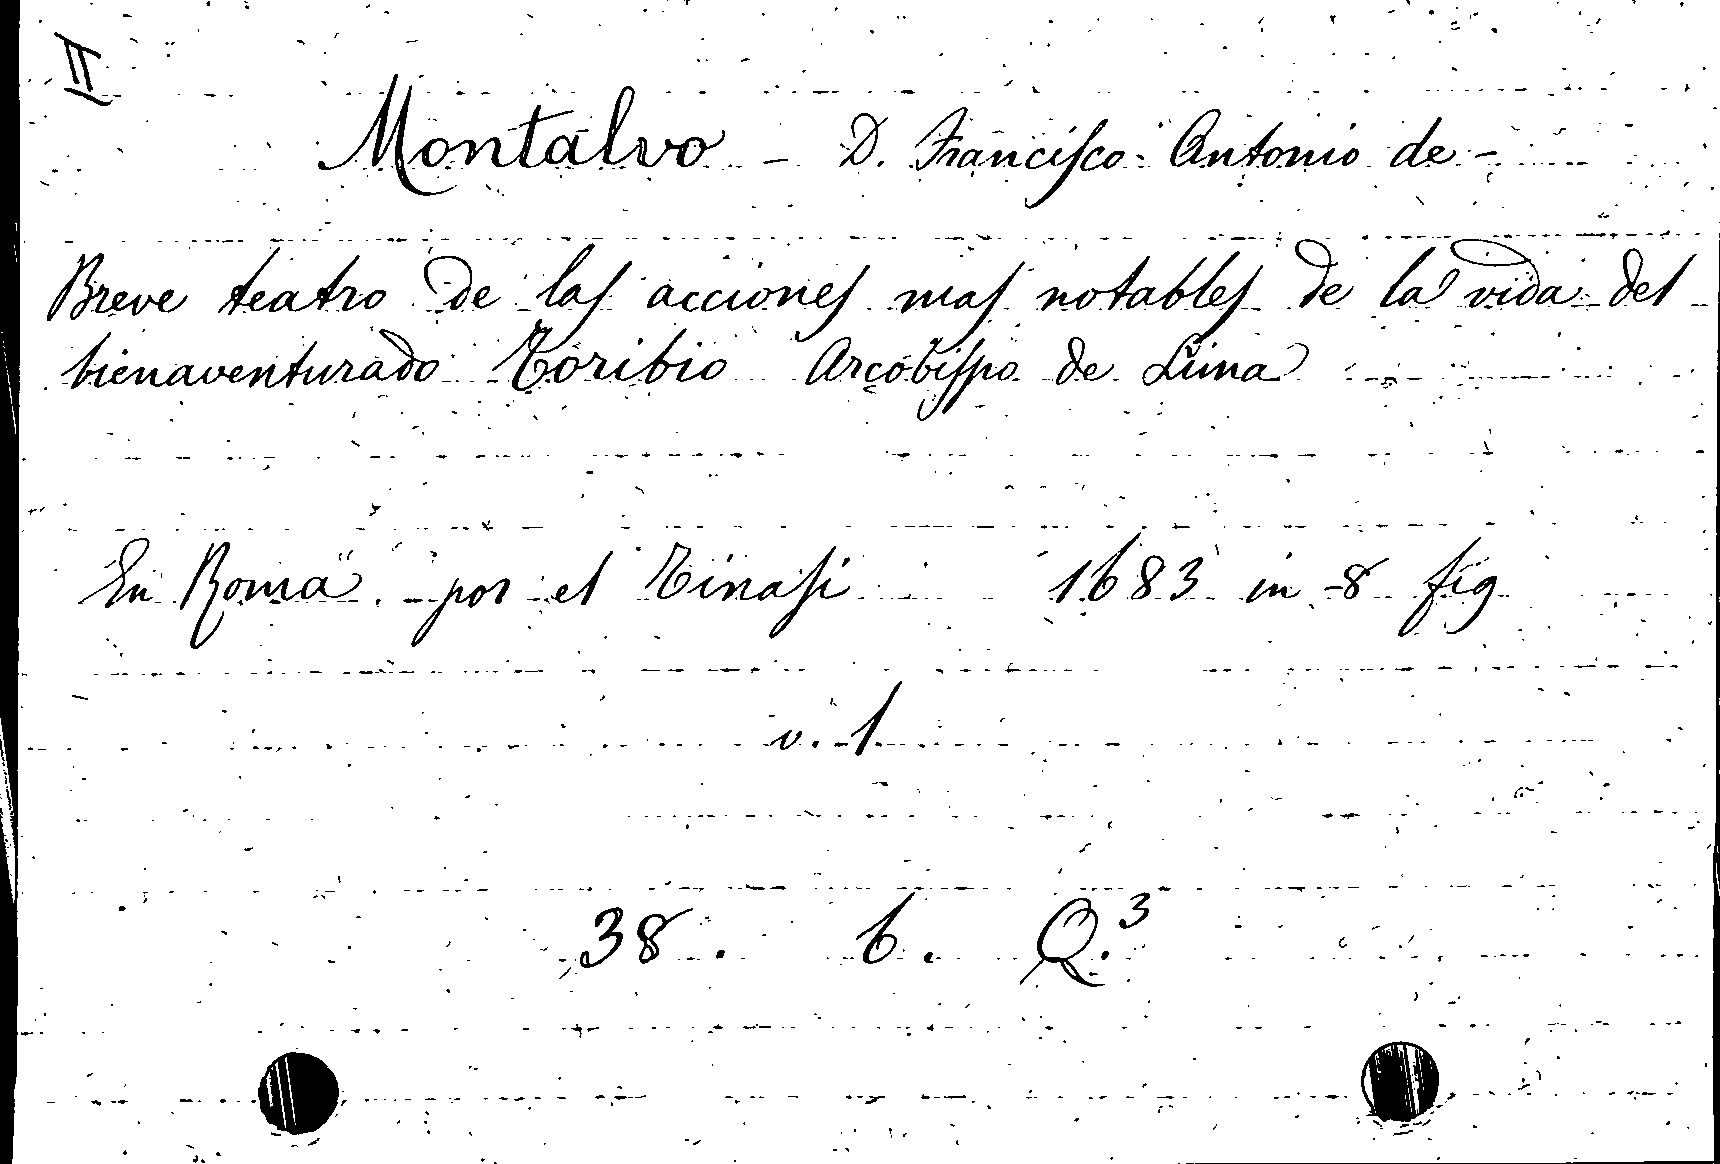 II
Montalvo - D. Franciſco Antonio de -
Breve teatro de laſ accioneſ maſ notableſ de la vida del
bienaventurado Toribio Arçobiſpo de Lima
En Roma por el Tinaſi 1683 in 8 fig
v. 1
38. b. Q.³